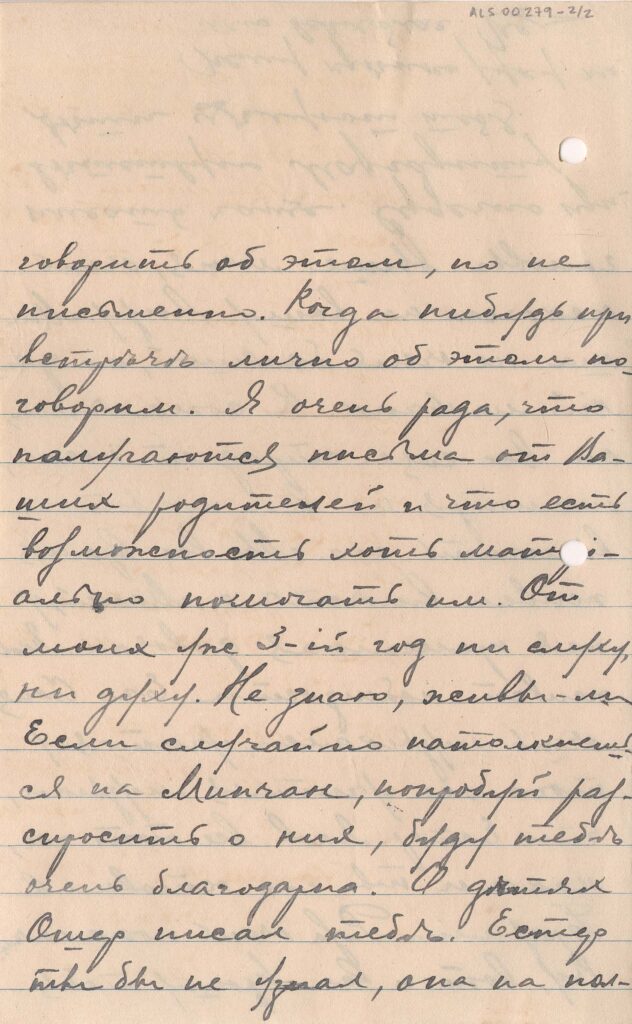 ALS 00279-2/2
говорить об этом, но не
письменно. Когда нибудь при
встрѣчѣ лично об этом по-
говорим. Я очень рада, что
получаются письма от Ва-
ших родителей и что есть
возможность хоть матеріи-
ально помогать им. От
моих уже 3-ій год ни слуху,
ни духу. Не знаю, живы-ли
Если случайно натолкнешь-
ся на Минчан, попробуй раз-
спросить о них, буду тебѣ
очень благодарна. О дѣтях
Ошер писал тебѣ. Естер
ты бы не узнал, она на пол-